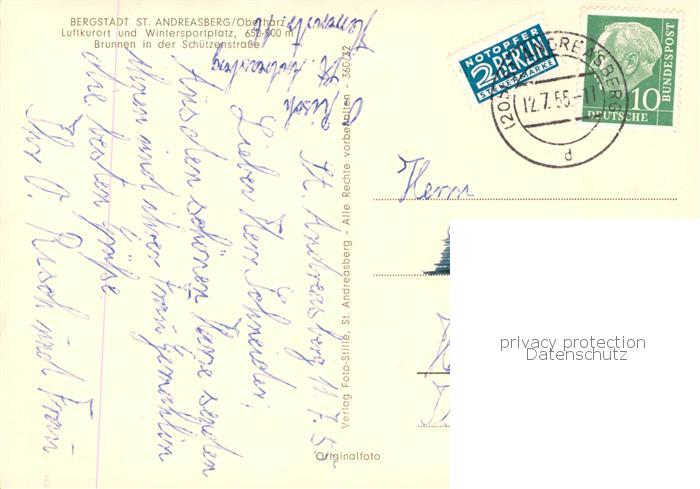 BERGSTADT ST. ANDREASBERG/Oberharz
Luftkurort und Wintersportplatz, 650-900 m
Brunnen in der Schützenstraße
O. Risch
St. Andreasberg
St. Andreasberg 11.7.55
Lieber Herr Schneider,
Aus dem schönen Harze senden
Ihnen und ihrer Frau Gemahlin
die besten Grüße.
Ihr O. Risch und Frau
Verlag Foto-Stille, St. Andreasberg - Alle Rechte vorbehalten - 360/32
Originalfoto
NOTOPFER
2 BERLIN
STEUERMARKE
ANDREASBERG
12.7.55.-11
d
10
DEUTSCHE
BUNDESPOST
Herrn
privacy protection
Datenschutz